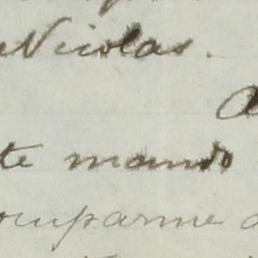 Nicolas.
A
te mando
ouparme a